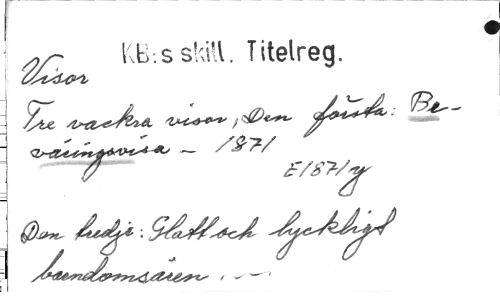 KB:s skill. Titelreg.
Visor
Tre vackra visor, Den första: Be-
väringsvisa - 1871
E1871y
Den tredje: Gladt och lyckligt
barndomsåren . . . .